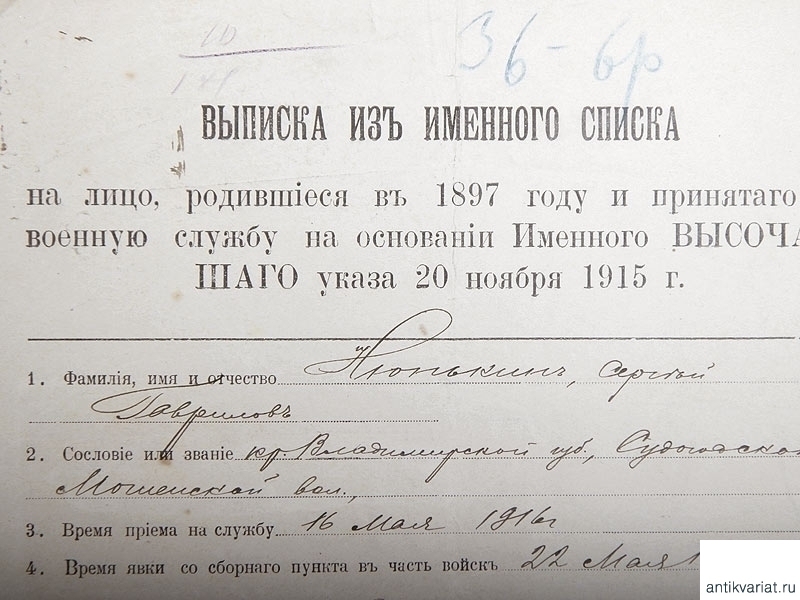 36 - 6р
ВЫПИСКА ИЗЪ ИМЕННОГО СПИСКА
на лицо, родившіеся въ 1897 году и принятаго
военную службу на основаніи Именного ВЫСОЧА
ШАГО указа 20 ноября 1915 г.
1. Фамилія, имя и отчество Нюнькинъ, Сергѣй
Гавриловъ
2. Сословіе или званіе кр. Владимирской губ., Судогодско
Мошенской вол.,
3. Время пріема на службу 16 Мая 1916 г
4. Время явки со сборнаго пункта въ часть войскъ 22 Мая 1
antikvariat.ru